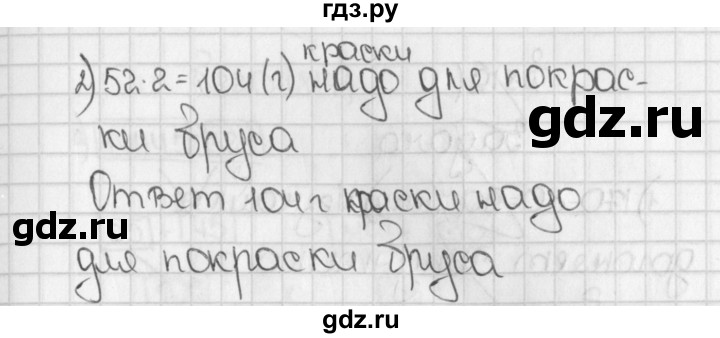 гдз.ру
краски
2) 52·2=104(г) надо для покрас-
ки бруса
gdz.ru
Ответ 104 г краски надо
gdz.ru
для покраски бруса
gdz.ru
gdz.ru